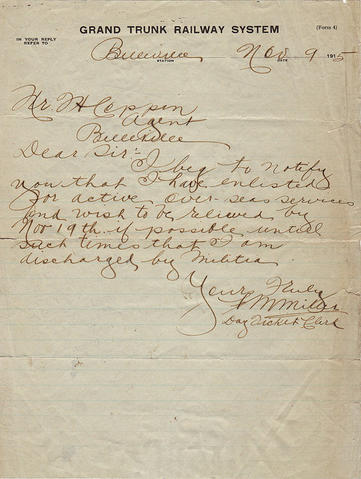 GRAND TRUNK RAILWAY SYSTEM
(Form 4)
IN YOUR REPLY
REFER TO
Belleville Nov 9 1915
STATION DATE
Mr. H Coppin
Agent
Belleville
Dear Sir:-
I beg to notify
you that I have enlisted
for active over seas services
and wish to be relieved by
Nov 19th if possible untill
such times that I am
discharged by Militia
Yours Truly
Miller
Day Ticket Clerk